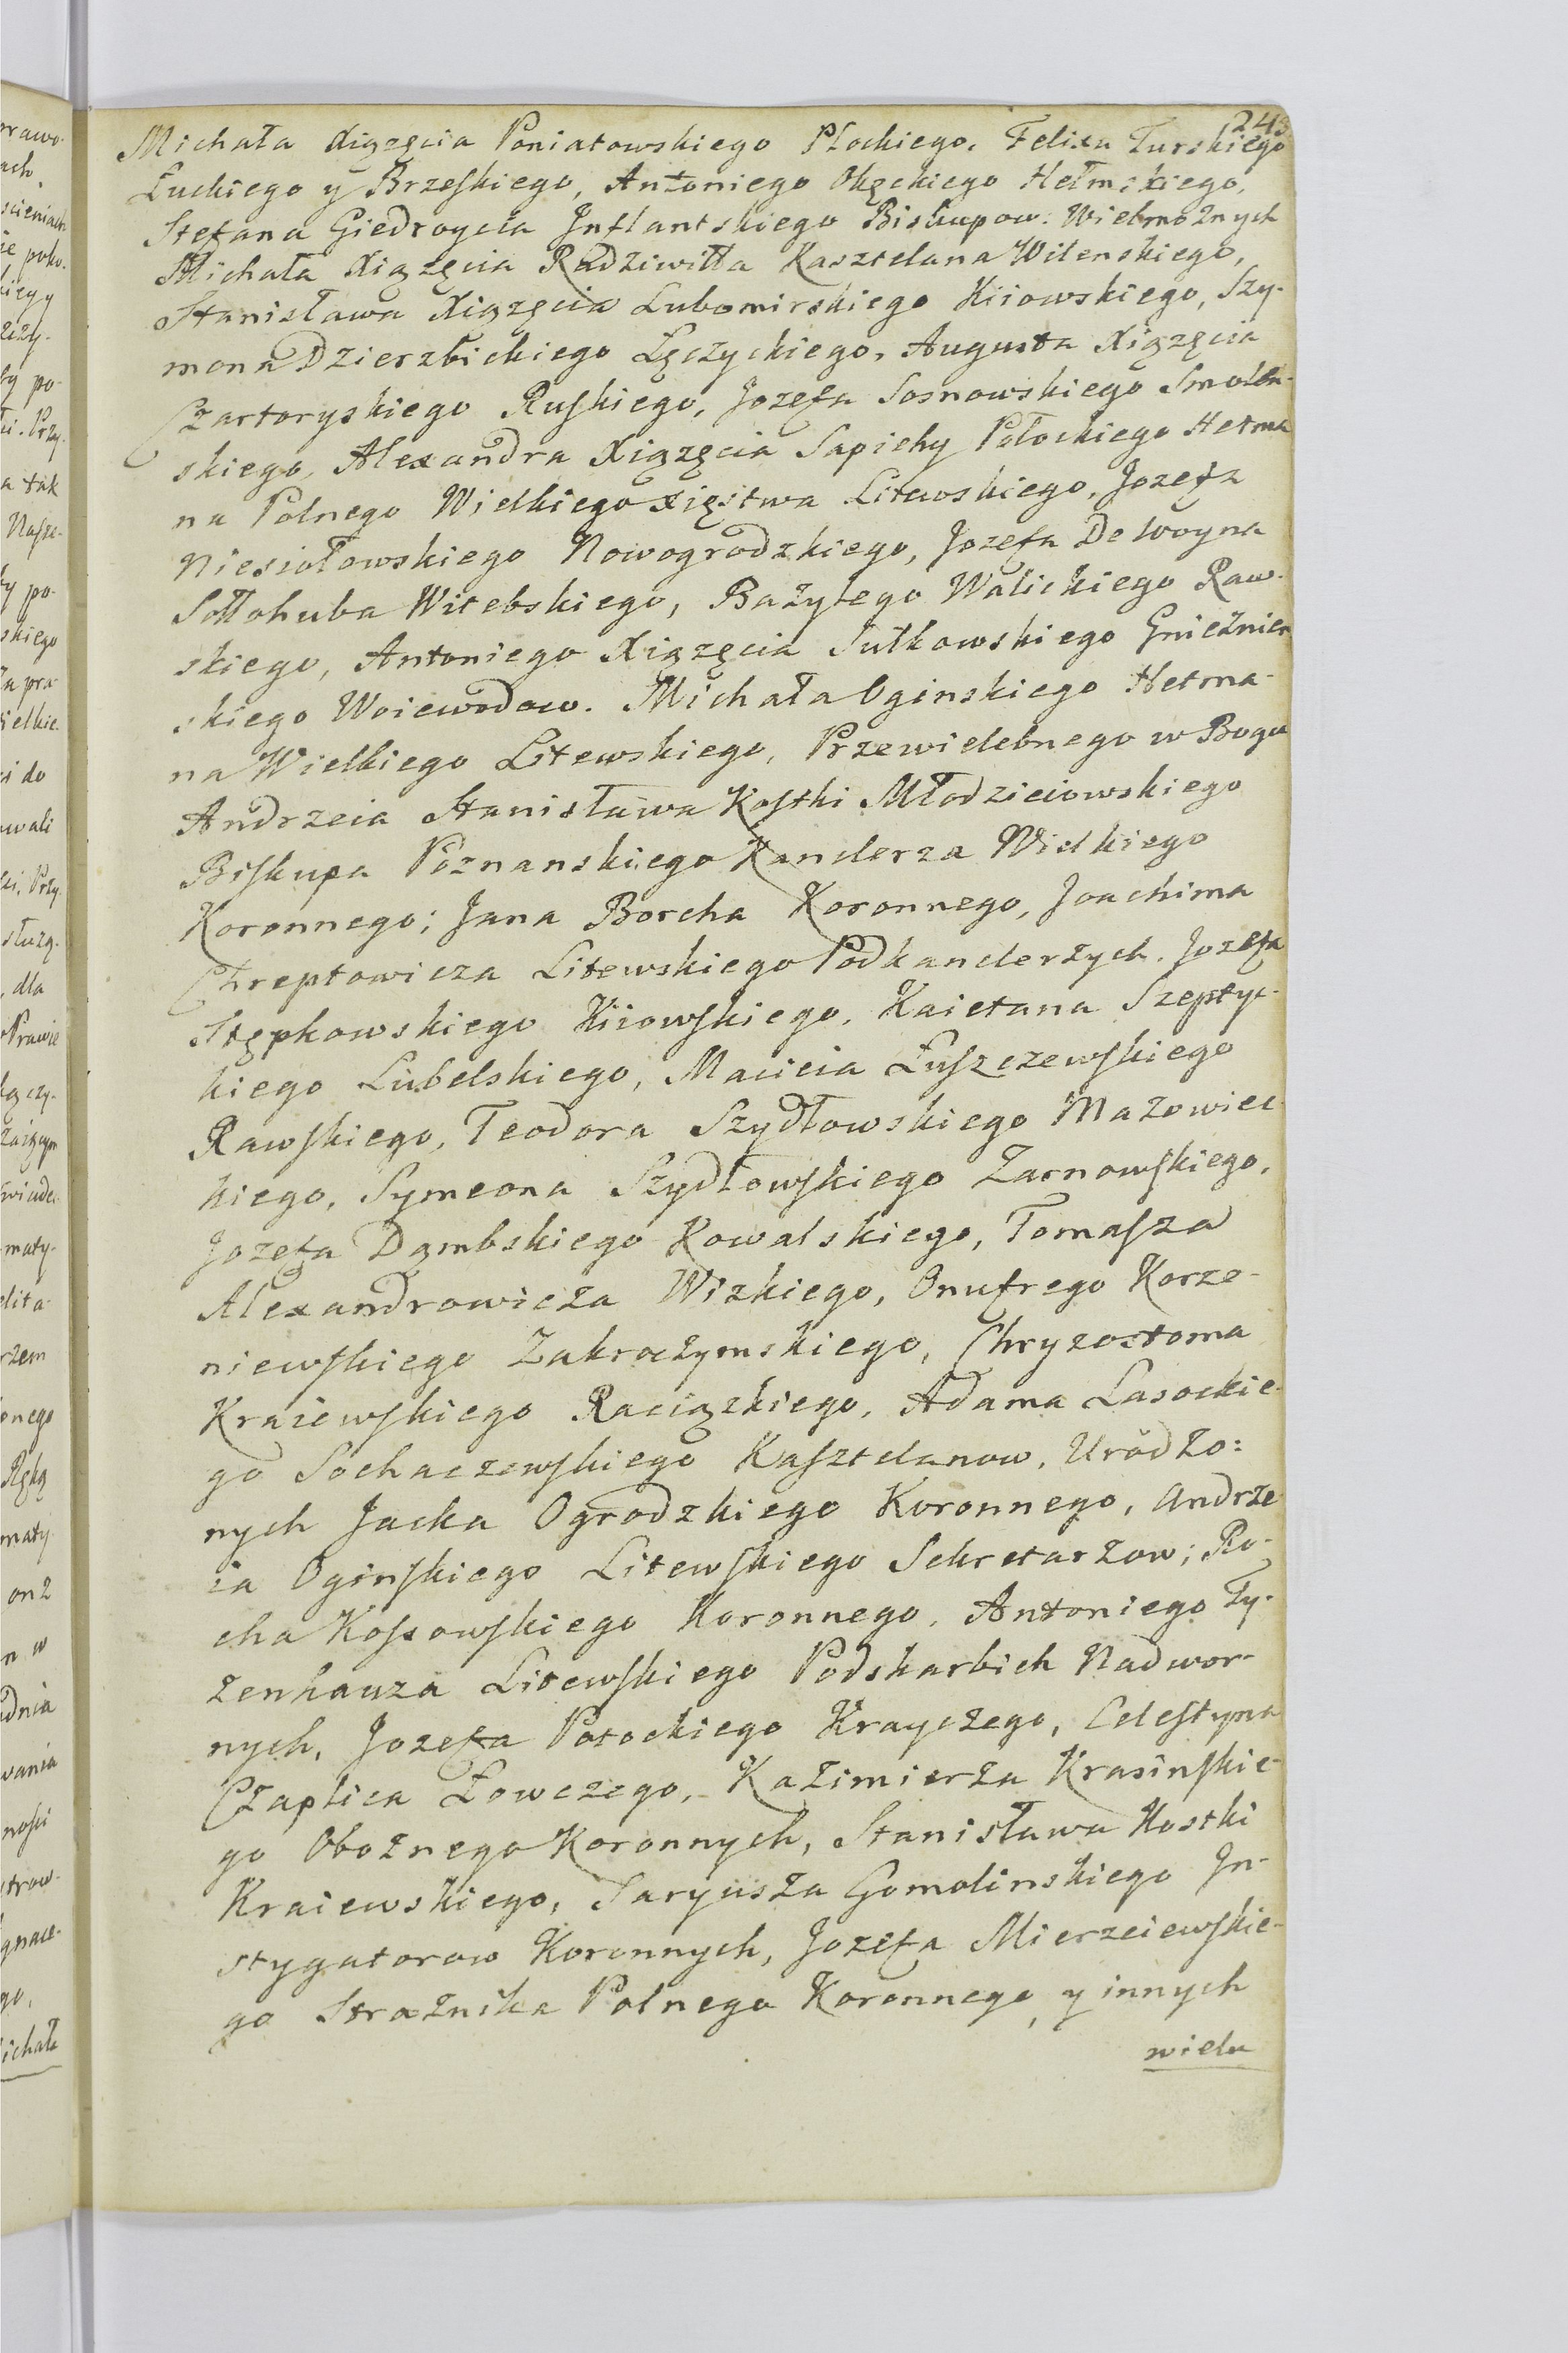 243
Michała Xiązęcia Poniatowskiego Płockiego, Felixa Turskiego
Łuckiego y Brzeskiego, Antoniego Okęckiego Hełmskiego,
Stefana Giedroycia Inflantskiego Biskupow. Wielmoznych
Michała Xiązęcia Radziwiłła Kasztelana Wilenskiego,
Stanisława Xiązęcia Lubomirskiego Kiiowskiego, Szy-
mona Dzierzbickiego Lęczyckiego, Augusta Xiązęcia
Czartoryskiego Ruskiego, Jozefa Sosnowskiego Smolen-
skiego, Alexandra Xiązęcia Sapiehy Połockiego Hetma
na Polnego Wielkiego Xięstwa Litewskiego, Jozefa
Niesiołowskiego Nowogrodzkiego, Jozefa De Woyna
Sołłohuba Witebskiego, Bazylego Walickiego Raw-
skiego, Antoniego Xiązęcia Sułkowskiego Gnieźnien
skiego Woiewodow. Michała Oginskiego Hetma-
na Wielkiego Litewskiego, Przewielebnego w Bogu
Andrzeia Stanisława Kostki Młodzieiowskiego
Biskupa Poznanskiego Kanclerza Wielkiego
Koronnego; Jana Borcha Koronnego, Joachima
Chreptowicza Litewskiego Podkanclerzych. Jozefa
Stępkowskiego Kiiowskiego, Kaietana Szeptyc-
kiego Lubelskiego, Macieia Łuszczewskiego
Rawskiego, Teodora Szydłowskiego Mazowiec
kiego, Symeona Szydłowskiego Zarnowskiego,
Jozefa Dąmbskiego Kowalskiego, Tomasza
Alexandrowicza Wizkiego, Onufrego Korze-
niewskiego Zakroczymskiego, Chryzostoma
Kraiewskiego Raciązkiego, Adama Lasockie-
go Sochaczewskiego Kasztelanow, Urodzo:
nych Jacka Ogrodzkiego Koronnego, Andrze
ia Oginskiego Litewskiego Sekretarzow; Ro-
cha Kossowskiego Koronnego, Antoniego Ty-
zenhauza Litewskiego Podskarbich Nadwor-
nych, Jozefa Potockiego Krayczego, Celestyna
Czaplica Łowczego, Kazimierza Krasinskie-
go Oboznego Koronnych, Stanisława Kostki
Kraiewskiego, Taryusza Gomolinskiego In-
stygatorow Koronnych, Jozefa Mierzeiewskie-
go Straznika Polnego Koronnego, y innych
wielu